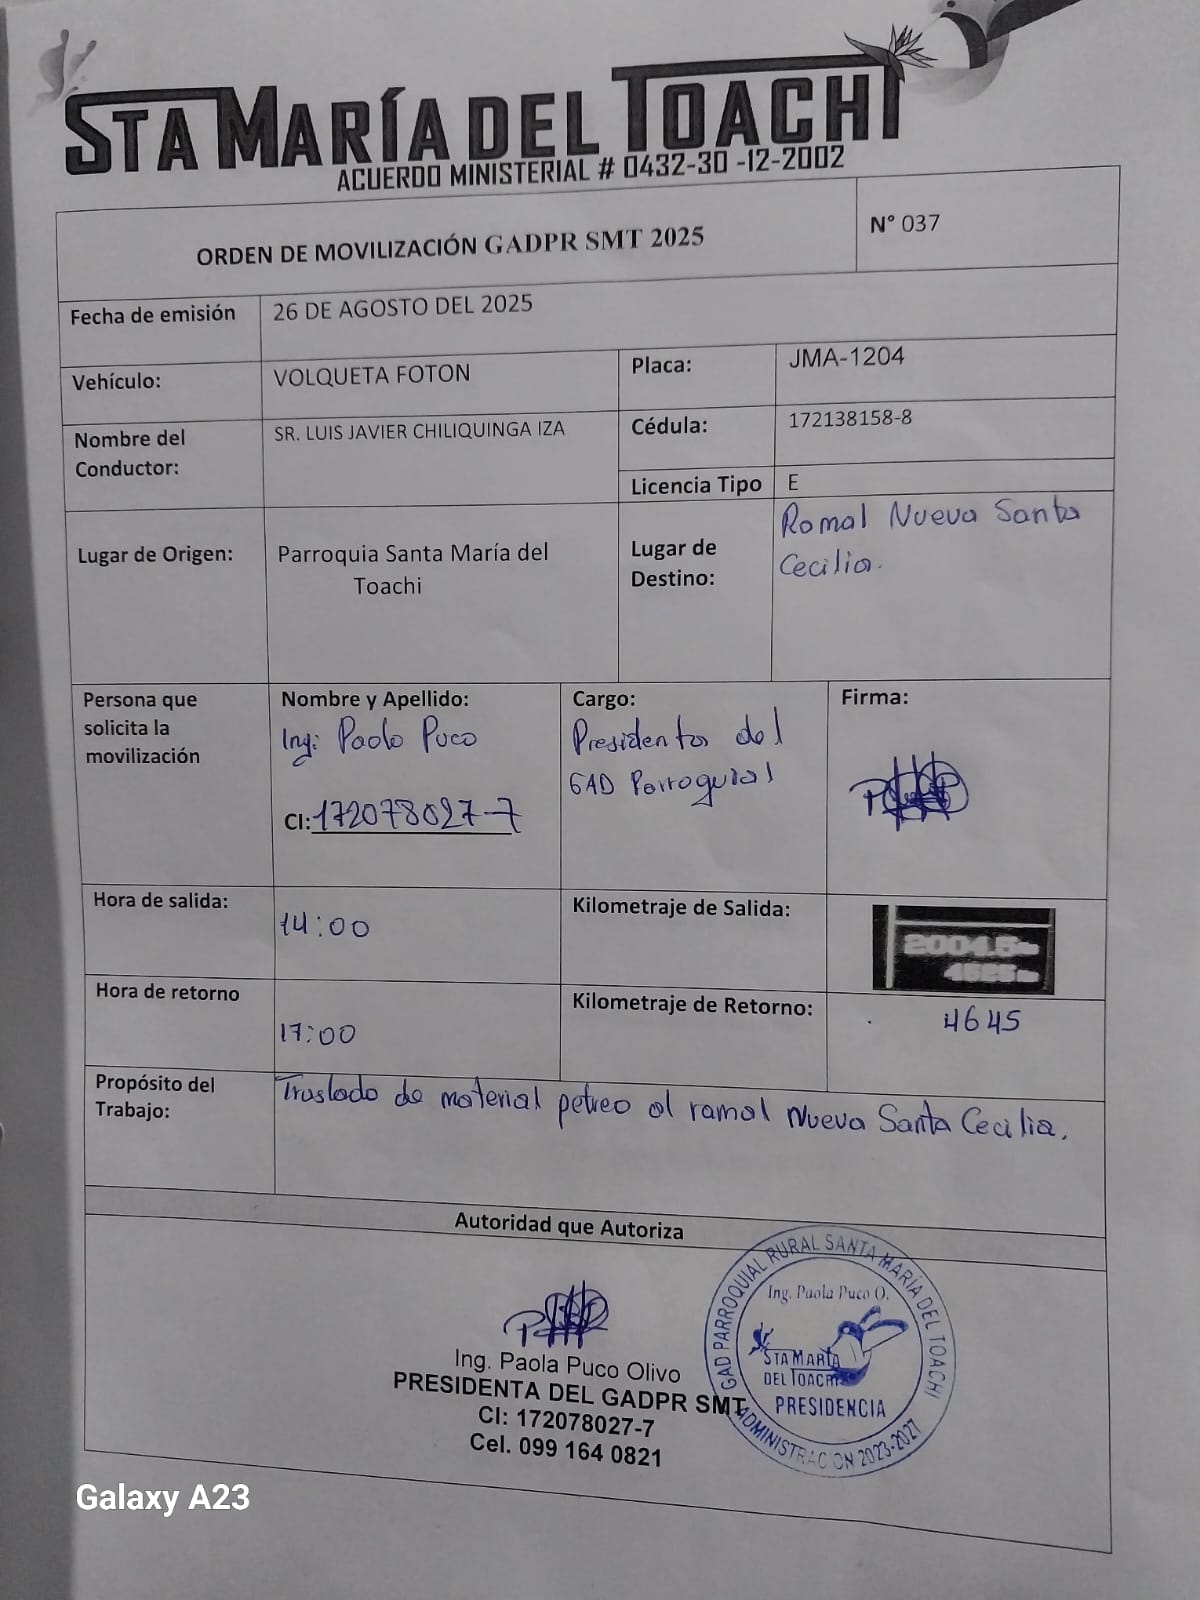 STA MARÍA DEL TOACHI
ACUERDO MINISTERIAL # 0432-30 -12-2002
ORDEN DE MOVILIZACIÓN GADPR SMT 2025
N° 037
Fecha de emisión
26 DE AGOSTO DEL 2025
Vehículo:
VOLQUETA FOTON
Placa:
JMA-1204
Nombre del
Conductor:
SR. LUIS JAVIER CHILIQUINGA IZA
Cédula:
172138158-8
Licencia Tipo
E
Lugar de Origen:
Parroquia Santa María del
Toachi
Lugar de
Destino:
Ramal Nueva Santa
Cecilia.
Persona que
solicita la
movilización
Nombre y Apellido:
Ing: Paola Puco
CI:172078027-7
Cargo:
Presidenta del
GAD Parroquial
Firma:
Hora de salida:
14:00
Kilometraje de Salida:
2004.5
Hora de retorno
17:00
Kilometraje de Retorno:
4645
Propósito del
Trabajo:
Traslado de material petreo al ramal Nueva Santa Cecilia.
Autoridad que Autoriza
Ing. Paola Puco Olivo
PRESIDENTA DEL GADPR SMT
CI: 172078027-7
Cel. 099 164 0821
GAD PARROQUIAL RURAL SANTA MARÍA DEL TOACHI
Ing. Paola Puco O.
STA MARÍA
DEL TOACHI
PRESIDENCIA
ADMINISTRACION 2023-2027
Galaxy A23